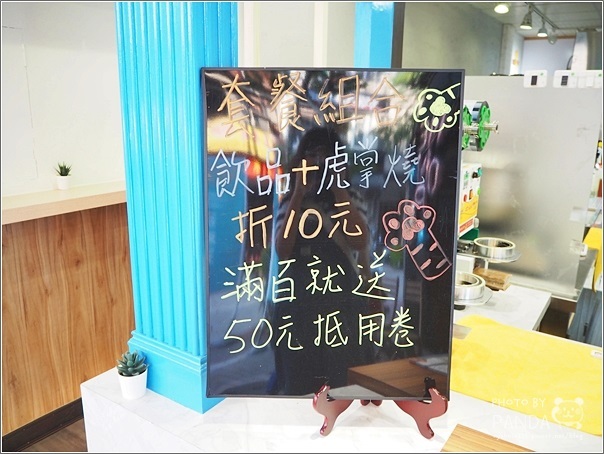 套餐組合
飲品+虎掌燒
折10元
滿百就送
50元抵用卷
PHOTO BY
PANDA